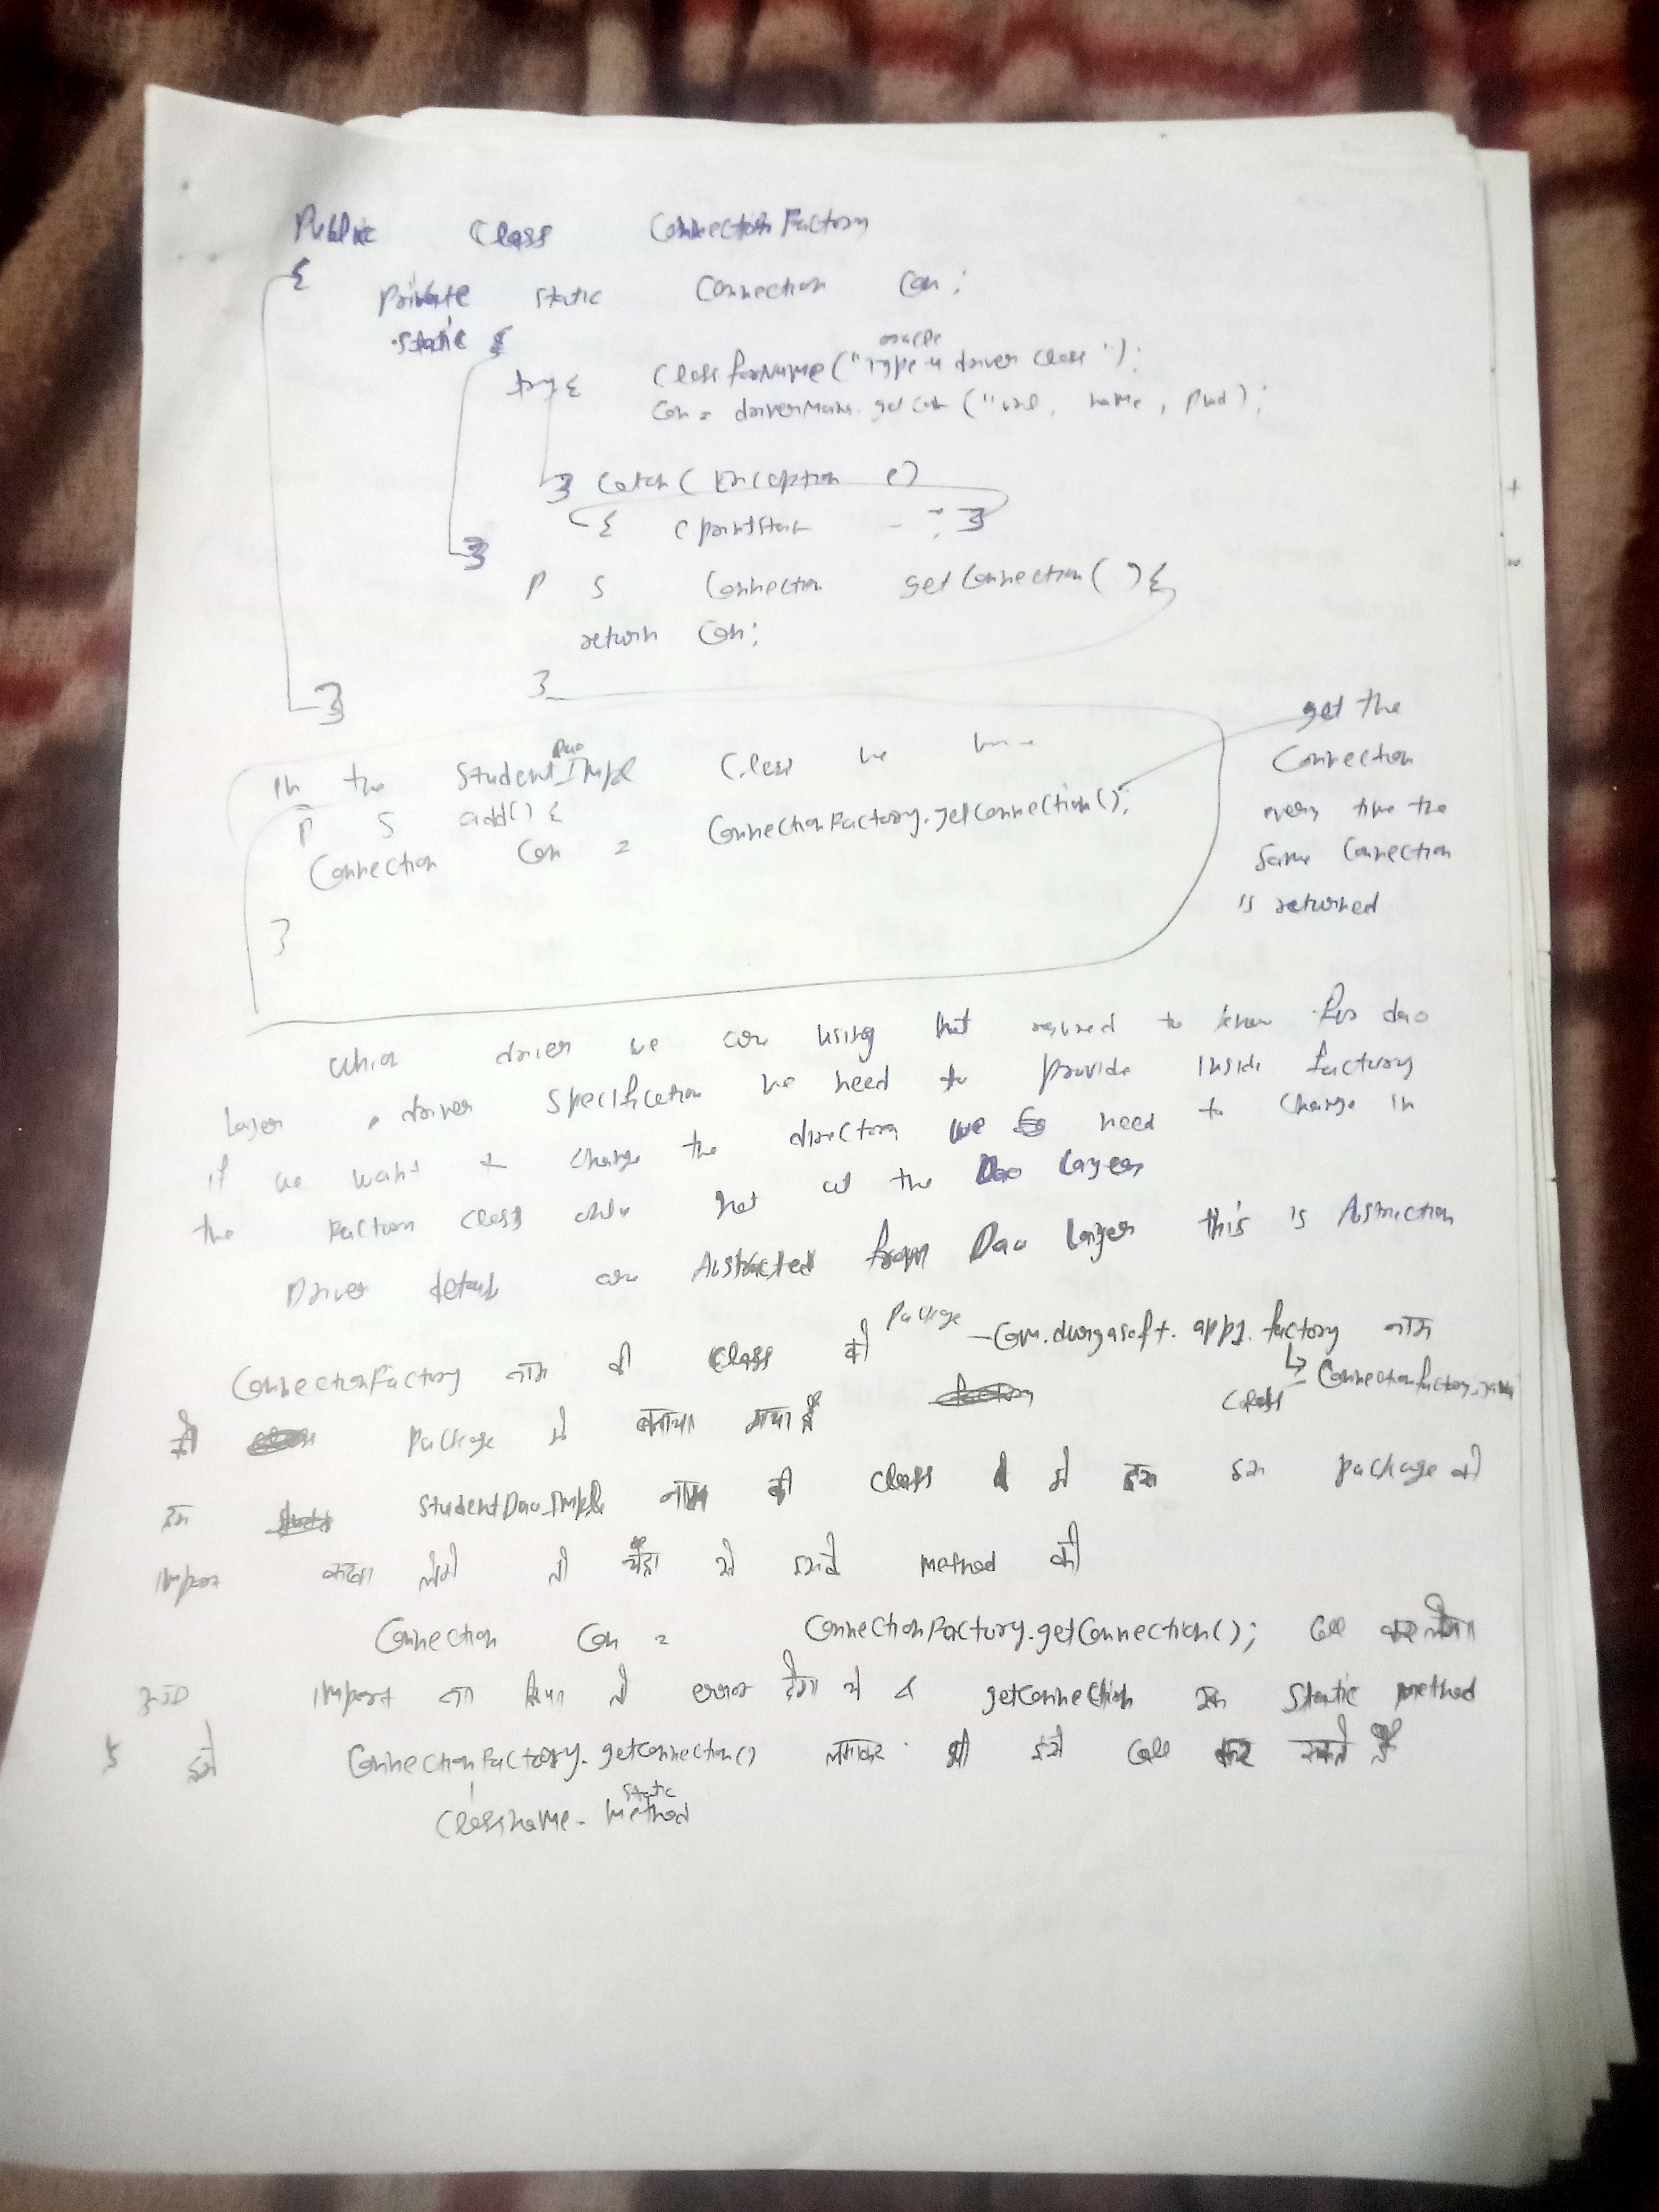 Public Class ConnectionFactory
{
private static Connection con;
static {
try { Class forName ("oracle Type 4 driver class");
con = driverMan. get con ("url, name, pwd);
} catch ( Exception e)
{ e printstack - ; }
}
P S Connection getConnection( ) {
return con;
}
}
get the
Connection
every time the
same Connection
is returned
in the StudentDaoImpl Class we
P S add() {
Connection con = ConnectionFactory.getConnection();
}
which driver we are using not required to know for dao
layer . driver specification we need to provide inside factory
if we want to change the we need to change in
the factory class only not at the Dao layer
Driver details are Abstracted from Dao layer this is Abstraction
ConnectionFactory नाम की class को package - Com.durgasoft.app1.factory नाम
↳ ConnectionFactory.java
की package में बनाया गया है class
हम StudentDaoImpl नाम की class में हम इस package को
import करवा लेंगे तो यहां से इसके method को
Connection con = ConnectionFactory.getConnection(); call कर लेंगे
import ना किया तो error देगा ये getConnection एक static method
है इसे ConnectionFactory.getConnection() लगाकर भी इसे call कर सकते हैं
Classname. static method